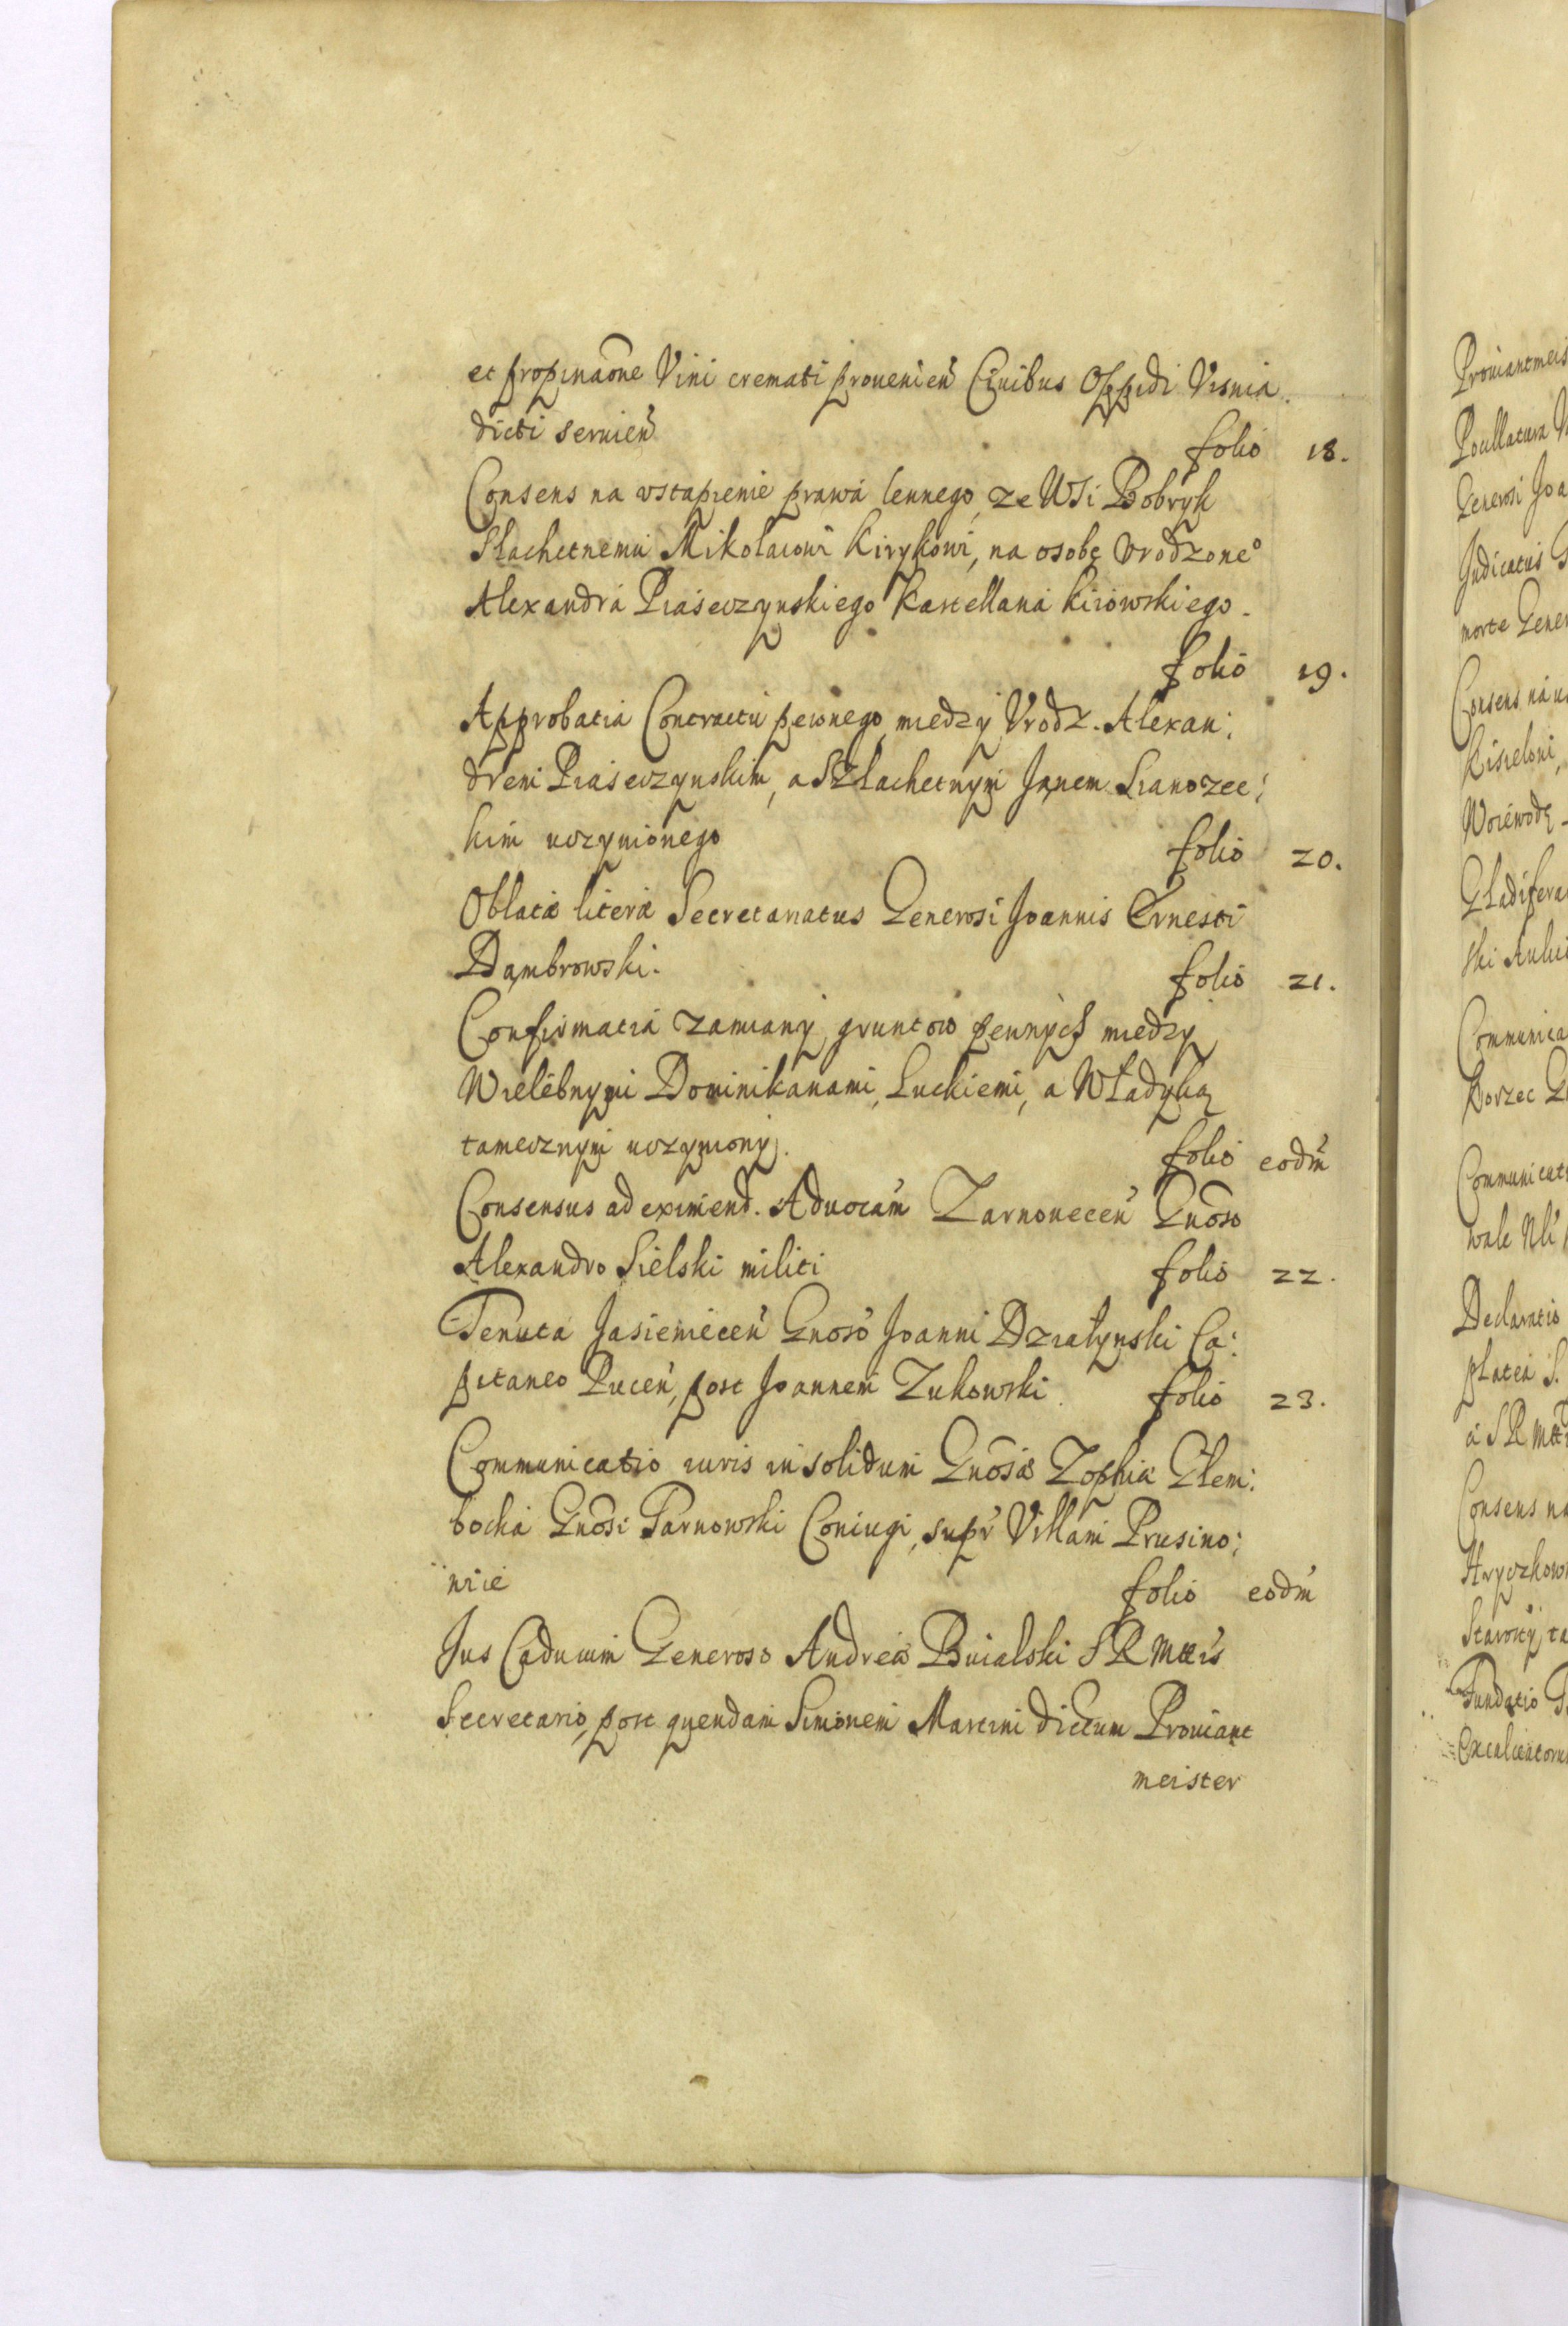 et propinaõne Vini cremati prouenień Ciuibus Oppidi Visnia
dicti seruień
folio 18.
Consens na vstąpienie prawá lennego, ze Wsi Bobryk
Slachetnemu Mikołaiowi Kirykowi, na osobę Vrodzone°
Alexandrá Piaseczynskiego Kastellaná Kiiowskiego.
folio 19.
Approbatia Contractu pewnego miedzy Vrodz. Alexan:
drem Piáseczynskim, a Szlachetnym Janem
kim vczynionego
folio 20.
Oblatæ literæ Secretariatus Generosi Joannis Ernesti
Dąmbrowski.
folio 21.
Confirmatiá zamiany gruntow pewnych miedzy
Wielebnymi Dominikanami, Luckiemi, a Władyką
tamecznym vczyniony.
folio eodḿ
Consensus ad eximend. Aduocaḿ Zarnoueceń Gnõso
Alexandro Sielski militi
folio 22.
Tenuta Jasienieceń Gnoso Joanni Dzialynski Ca:
pitaneo Puceń, post Joannem Zukowski
folio 23.
Communicatio iuris in solidum Gnõsæ Zophiæ Głem:
bocka Gnõsi Tarnowski Coniugi, supŕ Villam Prusino:
wie
folio eodḿ
Jus Caducum Generoso Andreæ Buialski S R Mttis
Secretario, post quendam Simonem Martini dictum Prouiant
meister
Prouiantmeis
Generosi Joa
Judicatus
morte Gener
Consens ná
Kisieloni,
Woiewodę
Gladifera
ski Aulic
Communica
Korzec
Communicat
Declaratio
platea S.
á S R Mtt
Consens na
Hryczkow
Starosty ta
Fundatio
Excalceatoru